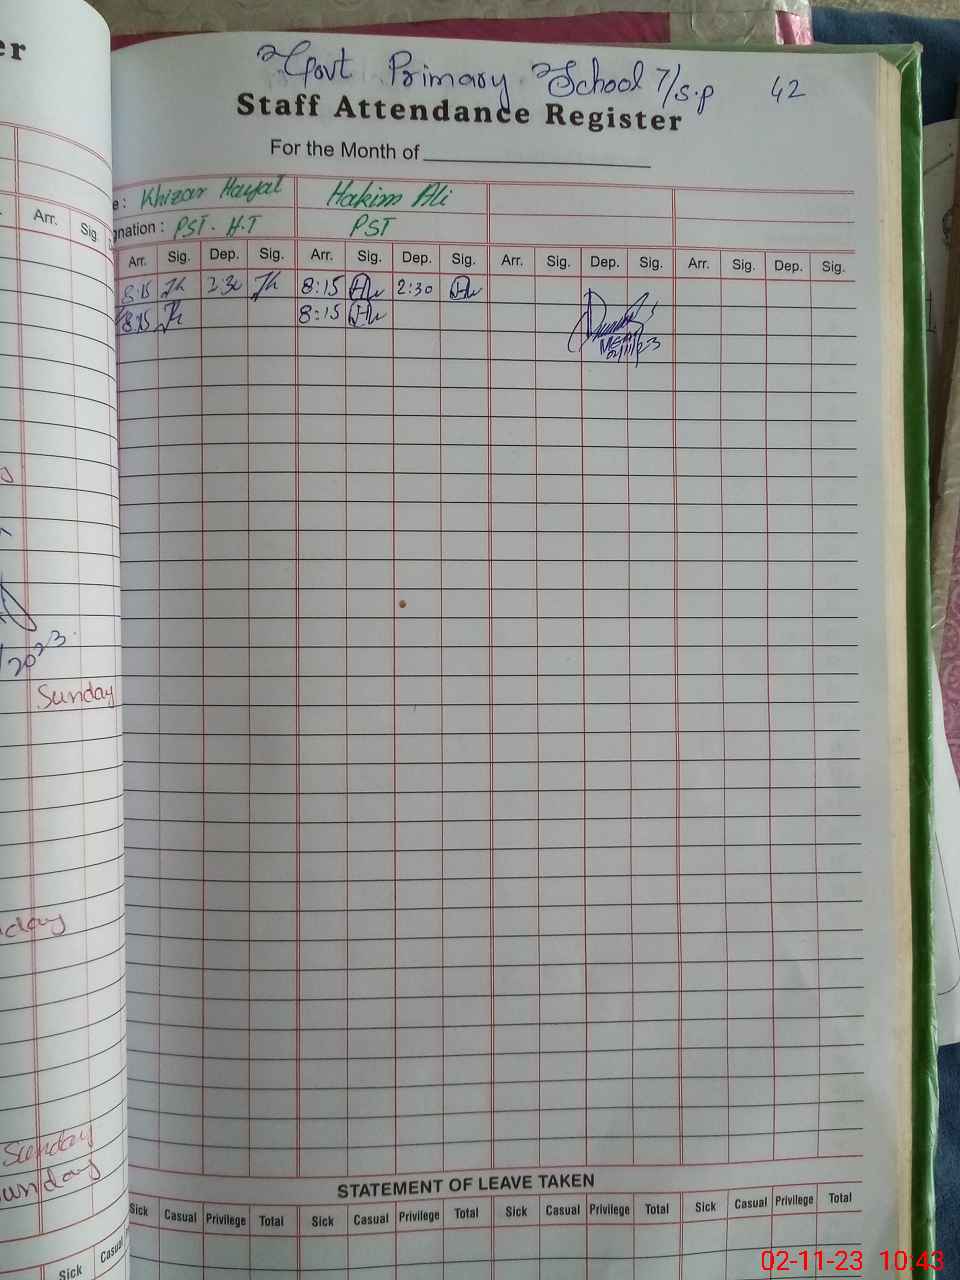 er
Govt Primary School 7/s.p 42
Staff Attendance Register
For the Month of
e: Khizar Hayat Hakim Ali
gnation: PST. H.T PST
Arr. Sig. Arr. Sig. Dep. Sig. Arr. Sig. Dep. Sig. Arr. Sig. Dep. Sig. Arr. Sig. Dep. Sig.
8:15 2:30 8:15 2:30
8:15 8:15
02/11/23
/2023
Sunday
day
Sunday
unday
STATEMENT OF LEAVE TAKEN
Sick Casual Privilege Total Sick Casual Privilege Total Sick Casual Privilege Total Sick Casual Privilege Total
Sick Casual
02-11-23 10:43